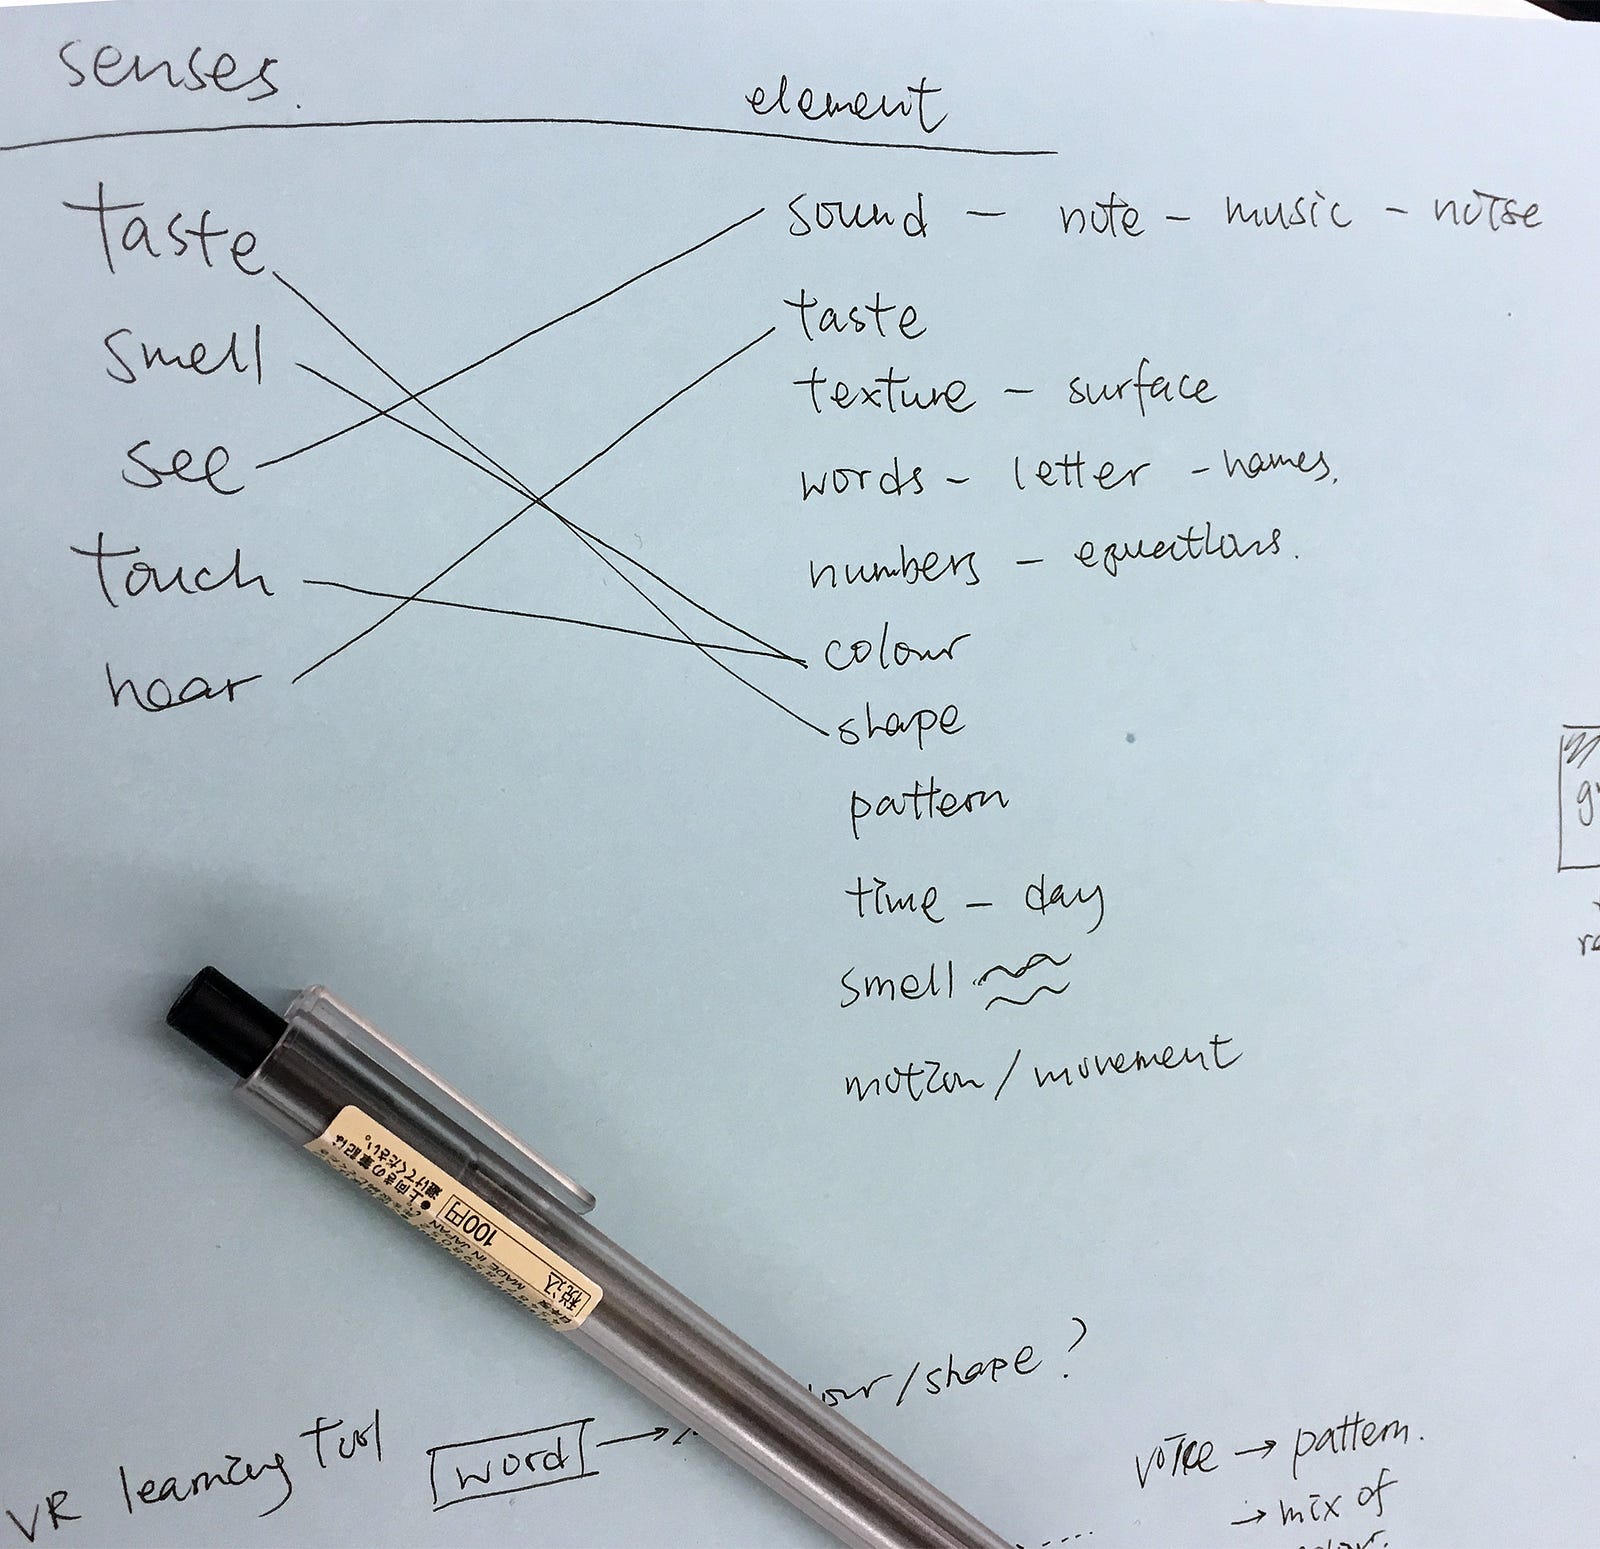 senses.
element
taste
smell
see
touch
hear
sound - note - music - noise
taste
texture - surface
words - letter - names.
numbers - equations.
colour
shape
pattern
time - day
smell
motion / movement
●上向きの筆記は
避けてください。
100円
税込
MADE IN JAPAN
VR learning tool
word →
our / shape?
voice → pattern.
→ mix of